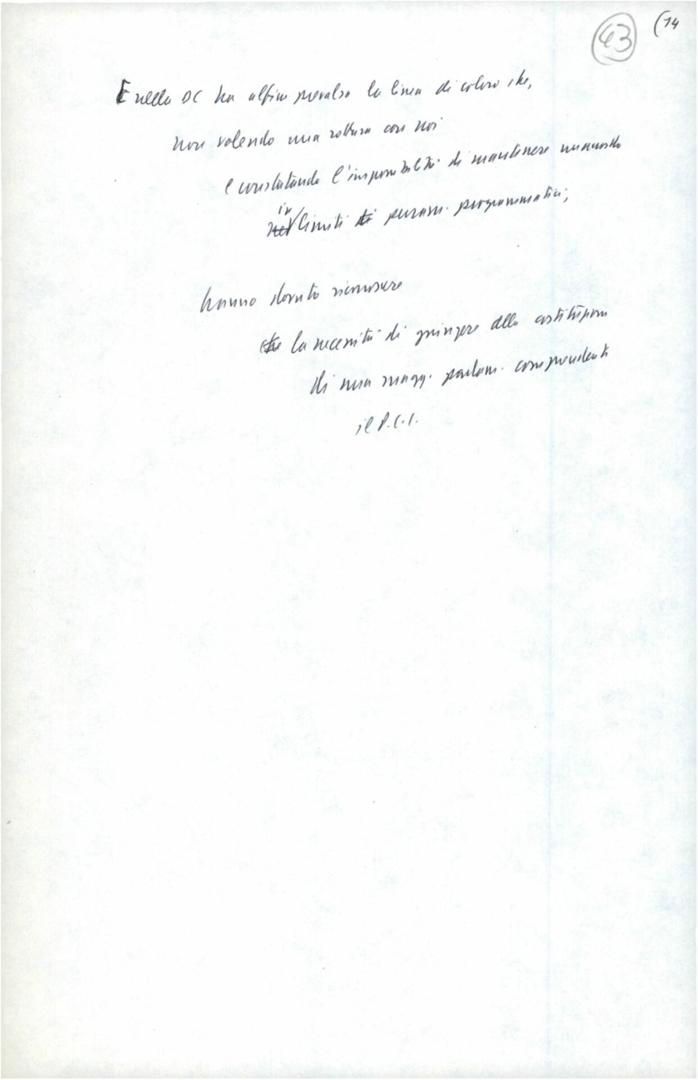 43 (14
E nella DC ha alfine prevalso la linea di coloro che,
non volendo una rottura con noi
e constatando l'impossibilità di mantenere
in
nei limiti di puram. programmatici,
hanno dovuto riconoscere
che la necessità di giungere alla costituzione
di una magg. parlam. comprendente
il P.C.I.